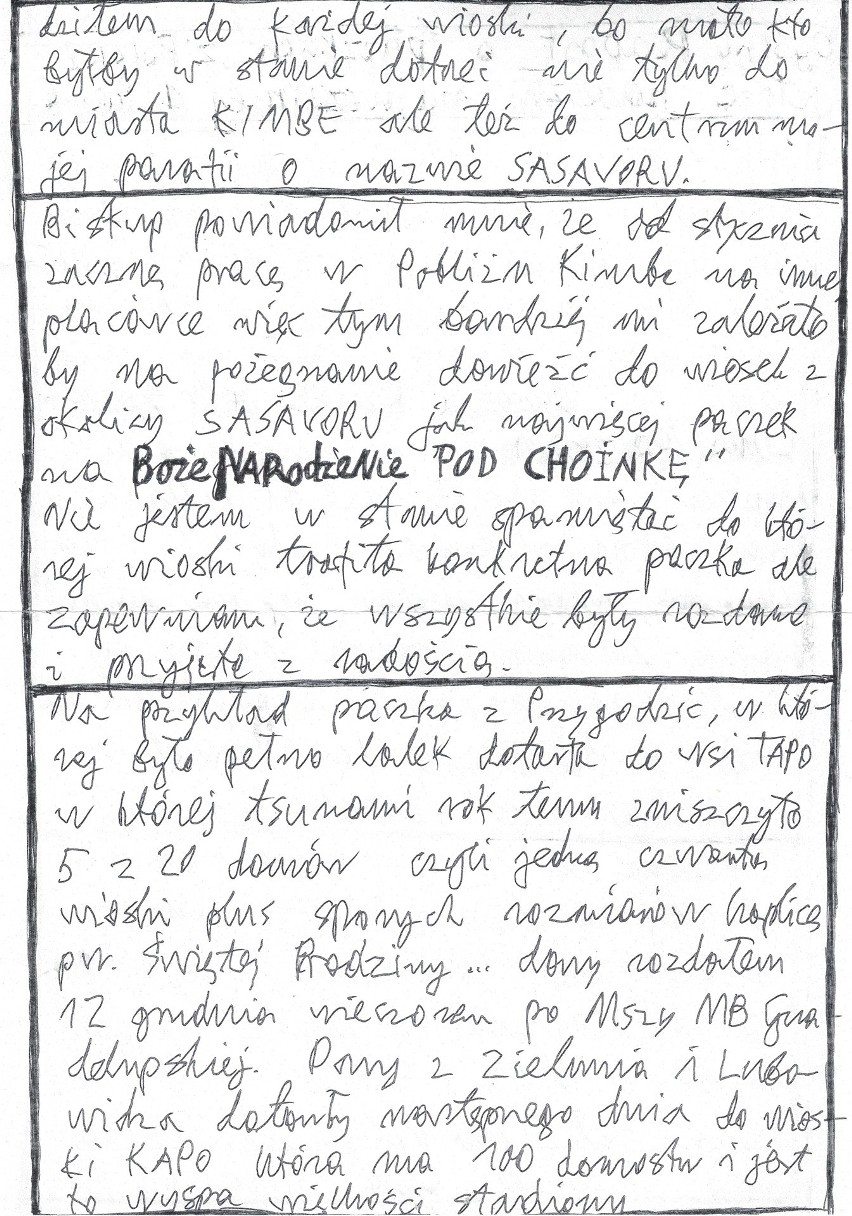 dziłem do każdej wioski, bo mało kto
byłby w stanie dotrzeć nie tylko do
miasta KIMBE ale też do centrum mo-
jej parafii o nazwie SASAVORU.
Biskup powiadomił mnie, że od stycznia
zacznę pracę w Pobliżu Kimbe na innej
placówce więc tym bardziej mi zależało
by na pożegnanie dowieźć do wiosek z
okolicy SASAVORU jak najwięcej paczek
na Boże NARodzeNie POD CHOINKĘ"
Nie jestem w stanie spamiętać do któ-
rej wioski trafiła konkretna paczka ale
zapewniam, że wszystkie były rozdane
i przyjęte z radością.
Na przykład paczka z Przygodzic, w któ-
rej było pełno lalek dotarła do wsi TAPO
w której tsunami rok temu zniszczyło
5 z 20 domów czyli jedną czwartą
wioski plus sporych rozmiarów kaplicę
pw. Świętej Rodziny... dary rozdałem
12 grudnia wieczorem po Mszy MB Gua-
delupskiej. Dary z Zielunia i Lubo-
widza dotarły następnego dnia do wios-
ki KAPO która ma 100 domostw i jest
to wyspa wielkości stadionu